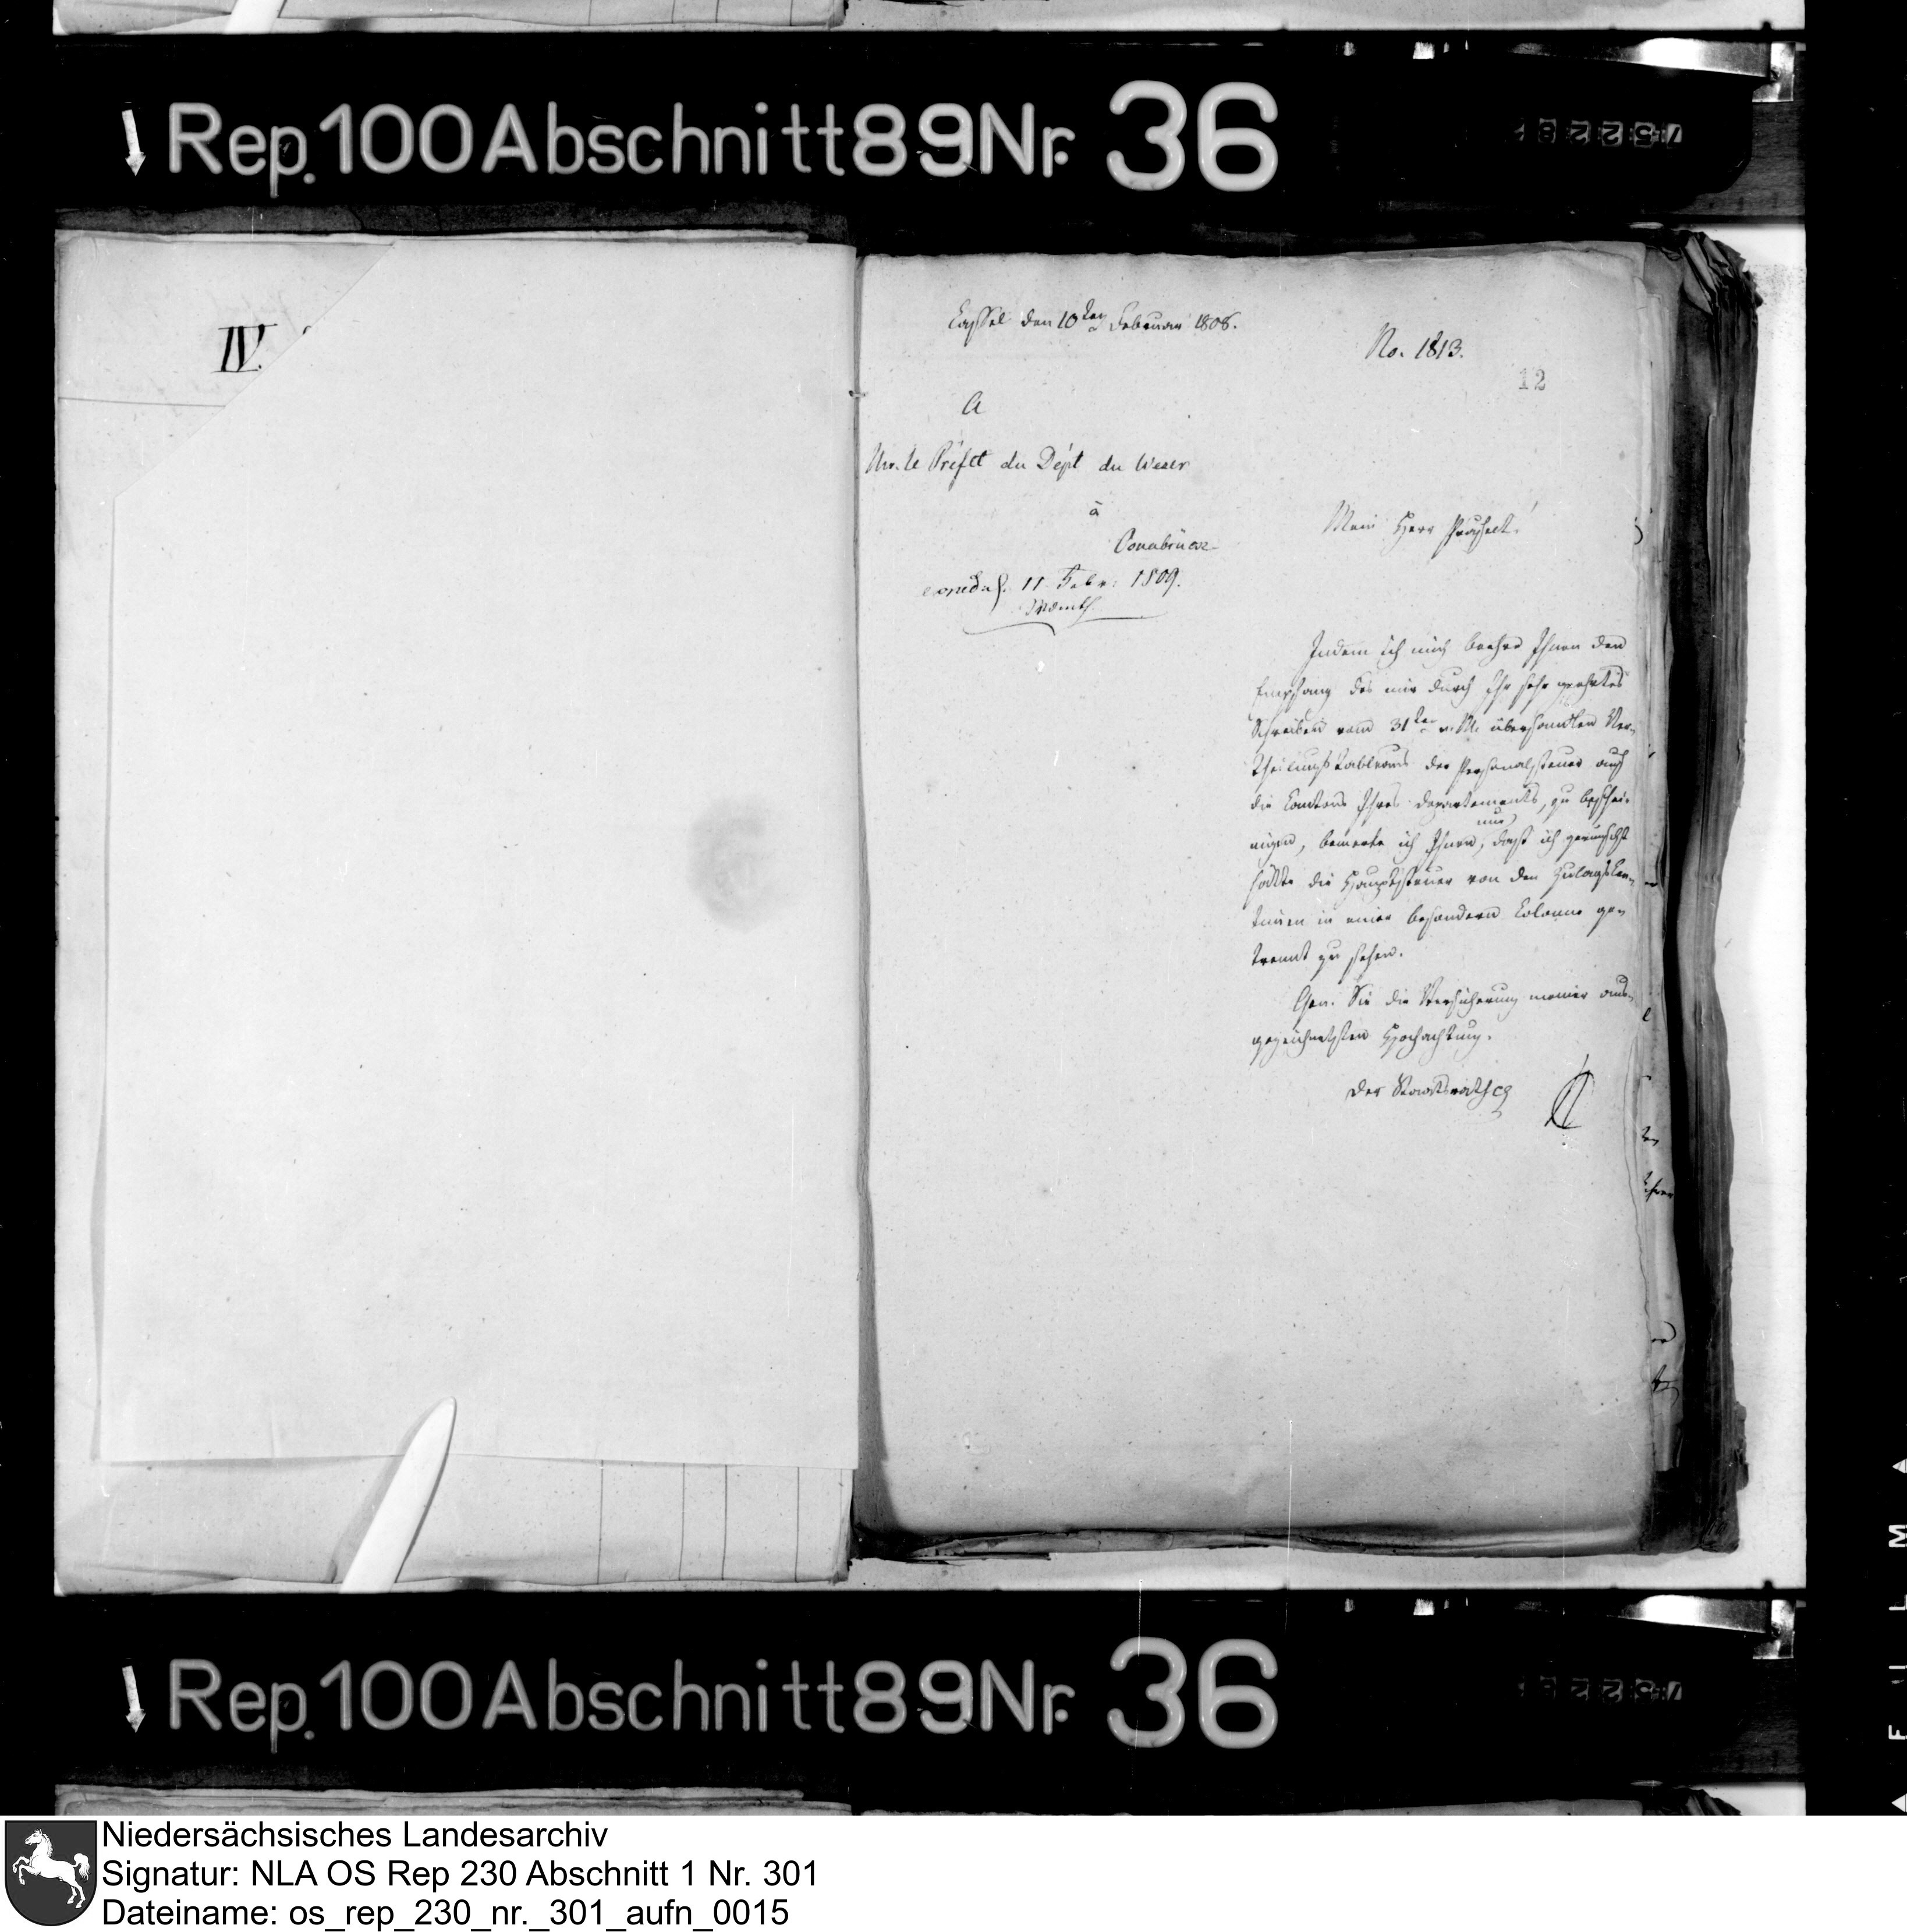 Rep. 100 Abschnitt 89 Nr. 36
IV.
Cassel den 10ten Februar 1808.
No. 1813.
12
A
Mr. le Préfet du Dépt du Weser
à
Osnabrück
Mein Herr Präfect!
11 Febr: 1809.
Indem ich mich beehre Ihnen den
Empfang des mir durch Ihr sehr geehrtes
Schreiben vom 31ten v. M. übersandten Ver-
theilungstableaus der Personalsteuer auf
die Cantons Ihres Departements, zu beschei-
nigen, bemerke ich Ihnen nur, daß ich gewünscht
hätte die Hauptsteuer von den Zulagscen-
timen in einer besondern Colonne ge-
trennt zu sehen.
Gen. Sie die Versicherung meiner aus-
gezeichnetsten Hochachtung.
Der Staatsrath
Rep. 100 Abschnitt 89 Nr. 36
Niedersächsisches Landesarchiv
Signatur: NLA OS Rep 230 Abschnitt 1 Nr. 301
Dateiname: os_rep_230_nr._301_aufn_0015